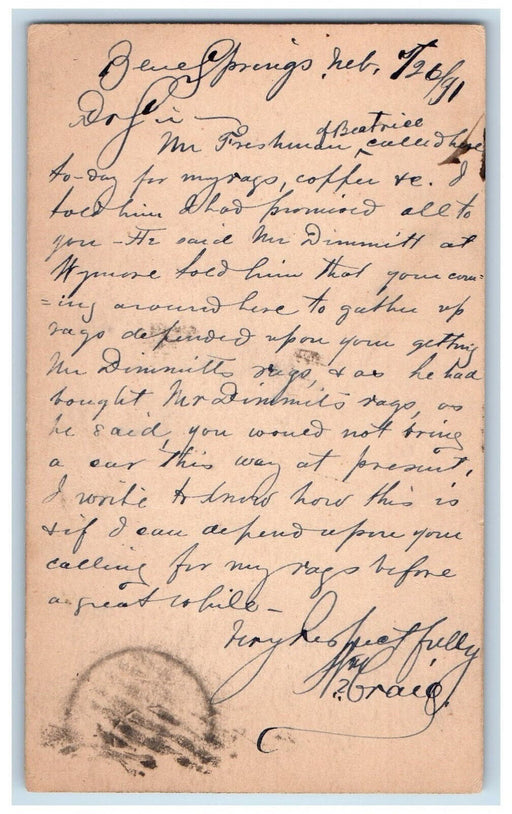 Blue Springs, Neb. 7/20/91
Dr Sir —
of Beatrice
Mr Freshman ‸ called here
to-day for my rags, copper &c. I
told him I had promised all to
you – He said Mr Dimmitt at
Wymore told him that your com=
=ing around here to gather up
rags depended upon your getting
Mr Dimmitts rags, & as he had
bought Mr Dimmits rags, as
he said, you would not bring
a car this way at present.
I write to know how this is
& if I can depend upon your
calling for my rags before
a great while –
Very Respectfully
Craig